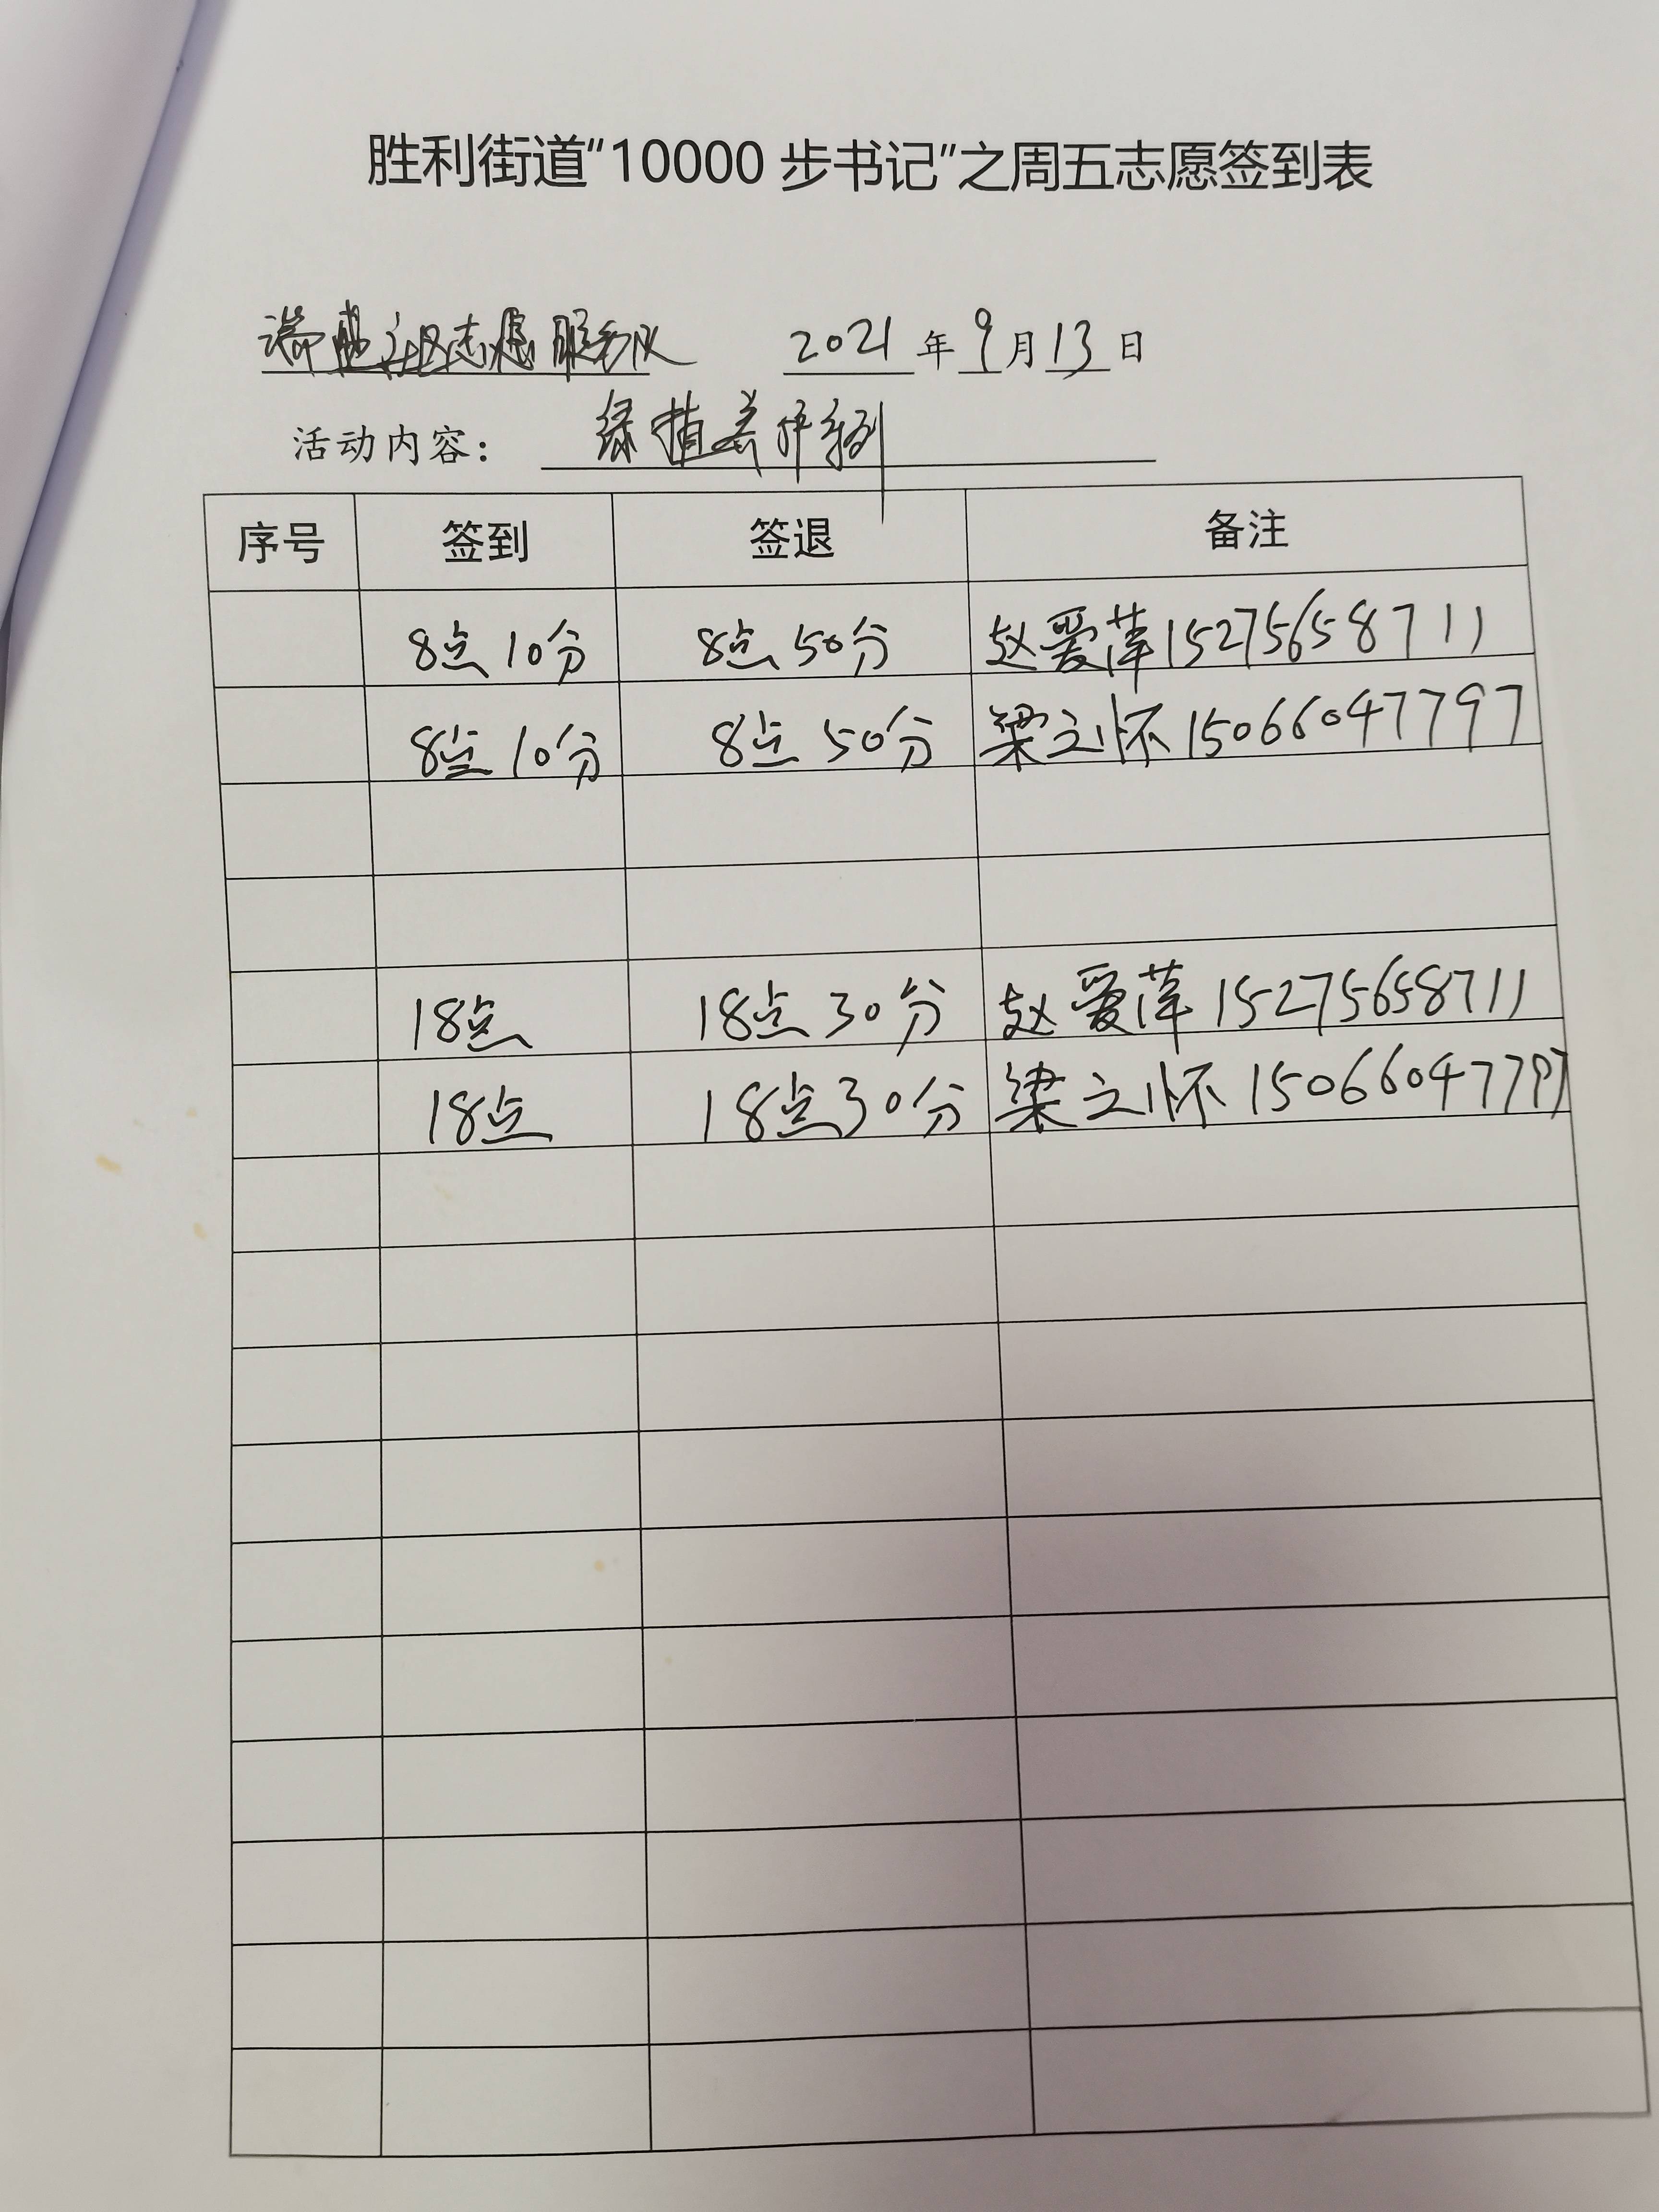 胜利街道“10000 步书记”之周五志愿签到表
社区志愿服务队 2021 年 9 月 13 日
活动内容： 绿植养护系列
序号 签到 签退 备注
8点10分 8点50分 赵爱萍 15275658711
8点10分 8点50分 梁之怀 15066047797
18点 18点30分 赵爱萍 15275658711
18点 18点30分 梁之怀 15066047797